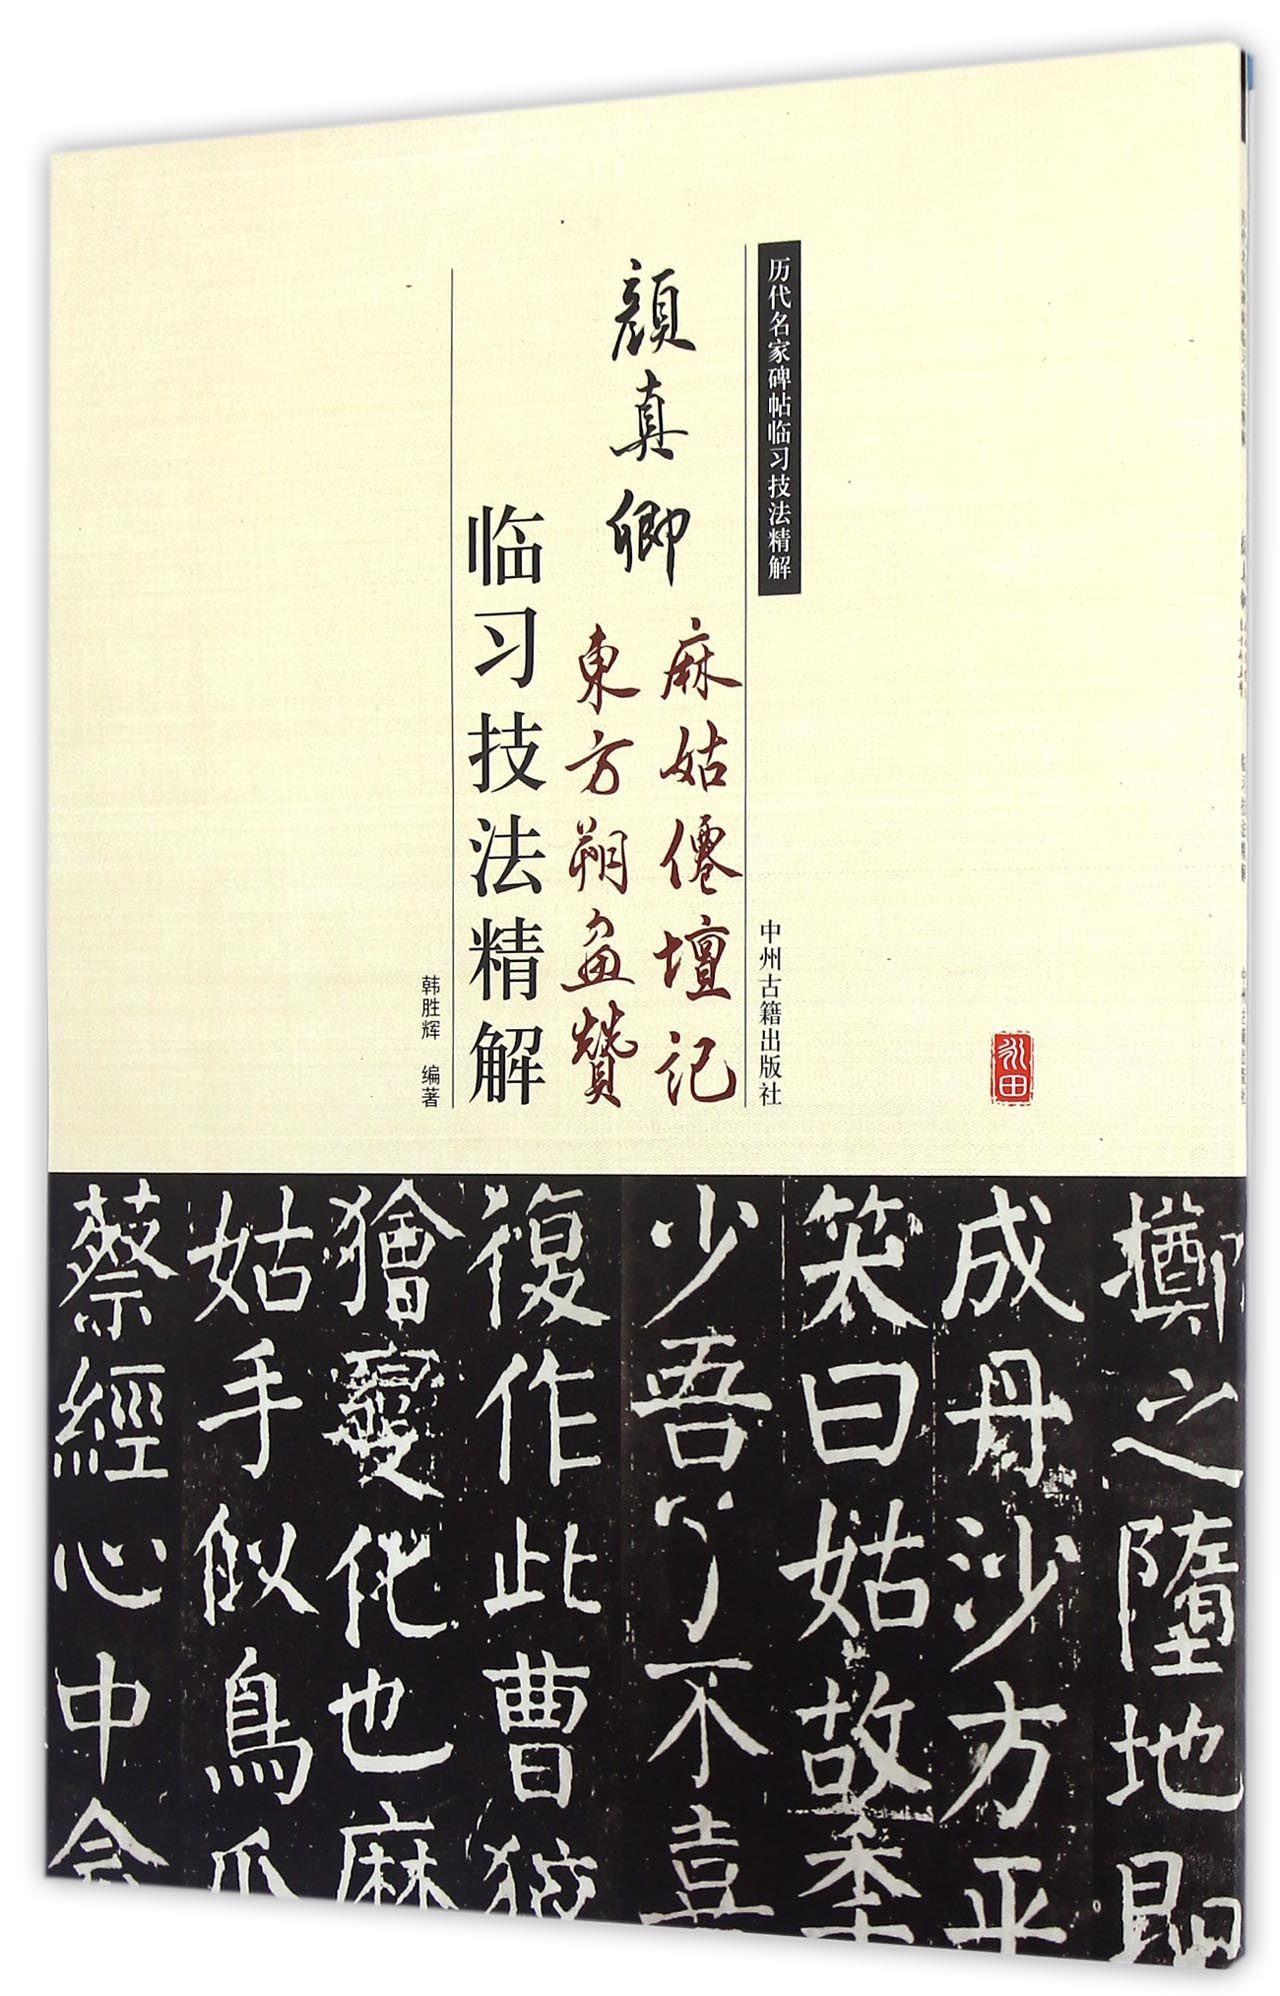 历代名家碑帖临习技法精解
中州古籍出版社
顏真卿
麻姑僊壇記
東方朔畫贊
临习技法精解
韩胜辉 编著
擲之墮地即
成丹沙方平
笑曰姑故秊
少吾了不喜
復作此曹狡
獪變化也麻
姑手似鳥爪
蔡經心中念